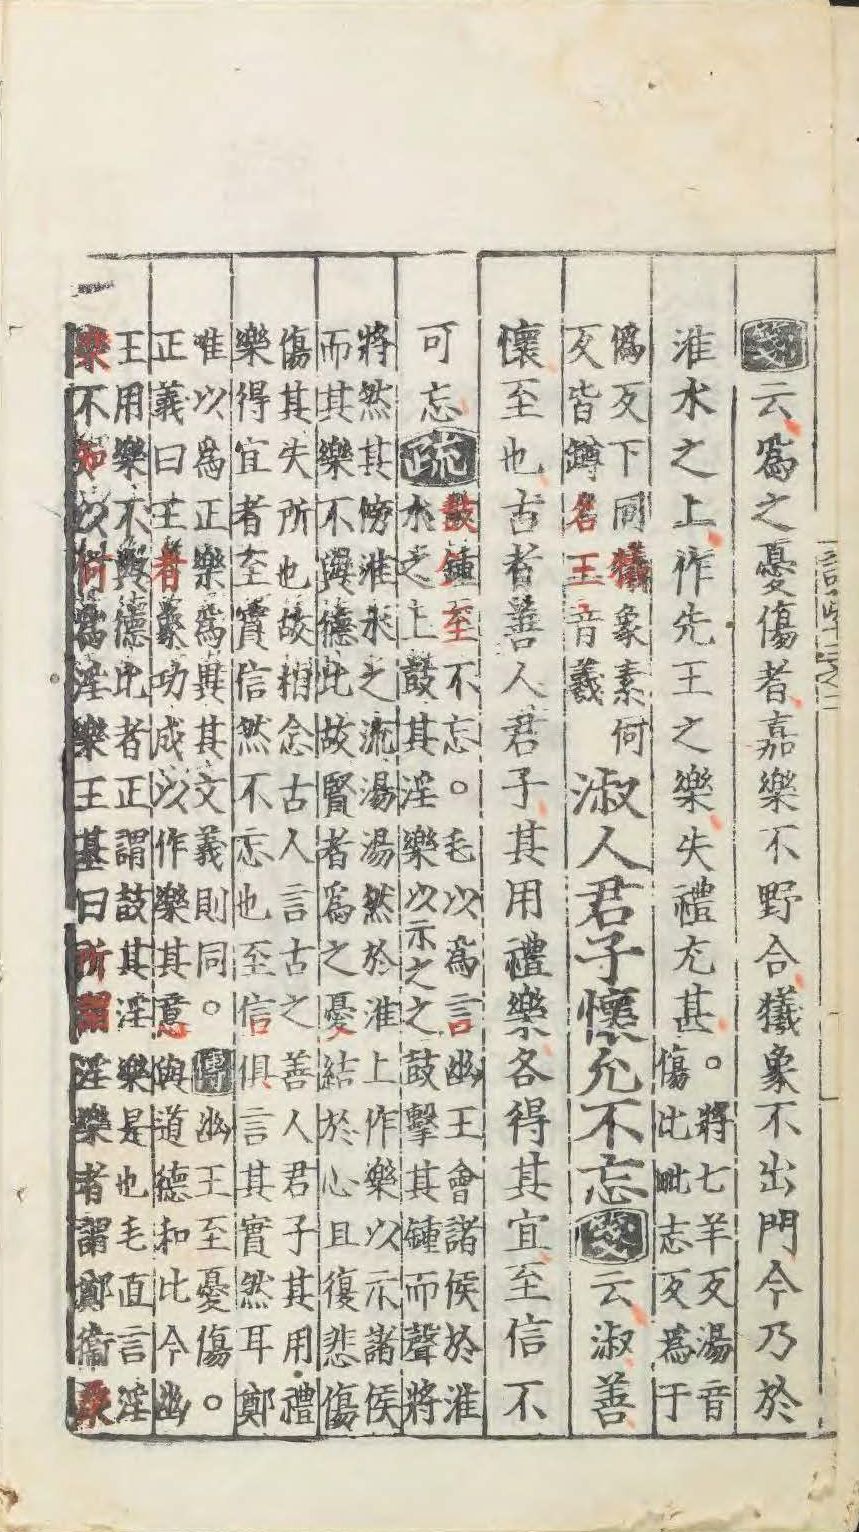 箋云爲之憂傷者嘉樂不野合犧象不出門今乃於
淮水之上作先王之樂失禮尤甚。將七羊反湯音
傷比毗志反爲于
僞反下同犧象素何
反皆罇名王音羲
淑人君子懷允不忘箋云淑善
懷至也古者善人君子其用禮樂各得其宜至信不
可忘疏鼓鍾至不忘。毛以爲言幽王會諸侯於淮
水之上鼓其淫樂以示之之鼓擊其鍾而聲將
將然其傍淮水之流湯湯然於淮上作樂以示諸侯
而其樂不與德比故賢者爲之憂結於心且復悲傷
傷其失所也故相念古人言古之善人君子其用禮
樂得宜者至實信然不忘也至信俱言其實然耳鄭
唯以爲正樂爲異其文義則同。傳幽王至憂傷。
正義曰王者象功成以作樂其意與道德和比今幽
王用樂不與德比者正謂鼓其淫樂是也毛直言淫
樂不知以何爲淫樂王基曰所謂淫樂者謂鄭衛桑